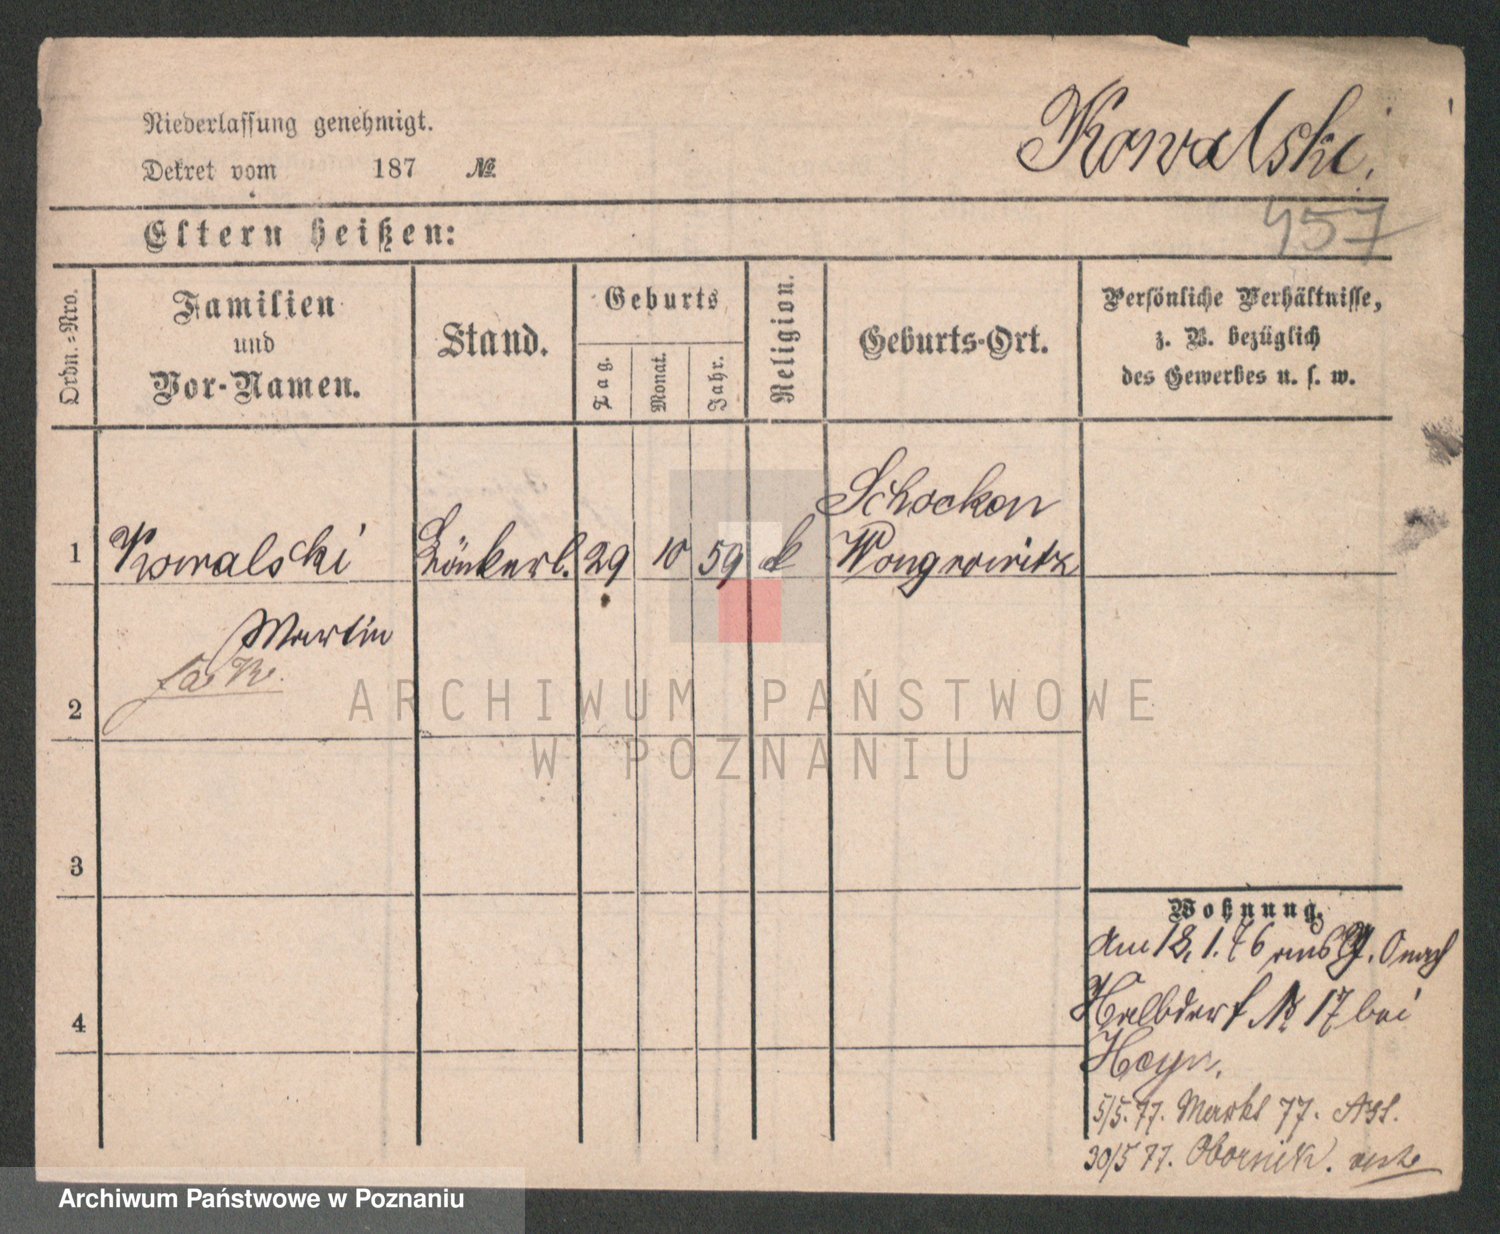 Niederlassung genehmigt.
Dekret vom 187 №
Kowalski.
457
Eltern heißen:
Ordn.=Nro.
Familien
und
Vor-Namen.
Stand.
Geburts
Tag.
Monat.
Jahr.
Religion.
Geburts-Ort.
Persönliche Verhältnisse,
z. B. bezüglich
des Gewerbes u. s. w.
Schocken
1 Kowalski 29 10 59 k Wongrowitz
Martin
2
3
4
Wohnung.
Am 18.1.76 aus G. O nach
Halbdorf № 17 bei
Hayn.
5/5.77. Markt 77.
30/5 77. Obornik.
ARCHIWUM PAŃSTWOWE
W POZNANIU
Archiwum Państwowe w Poznaniu